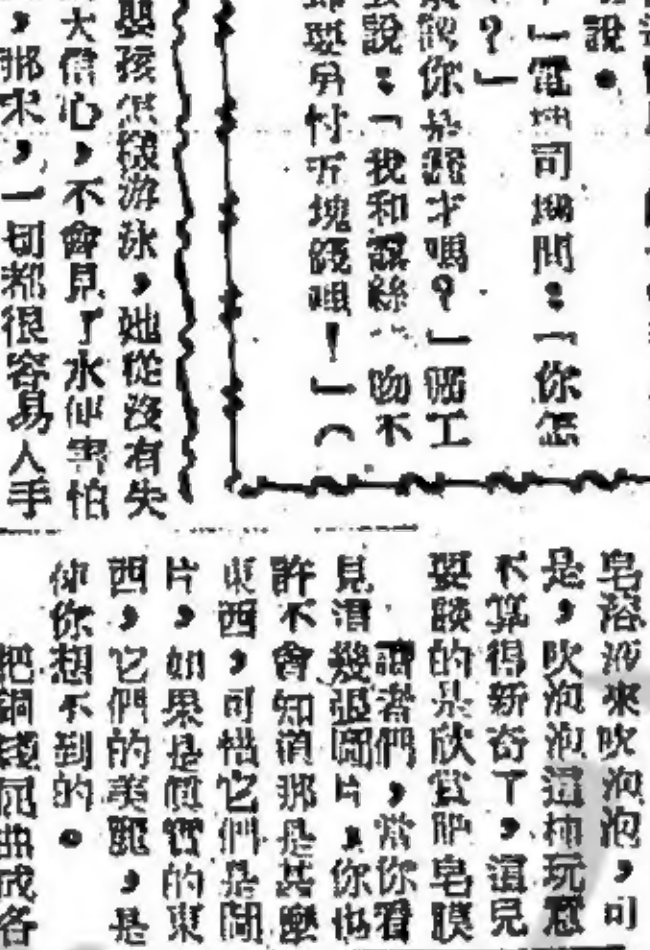 說。
「電梯司機問：「你怎
？」
你是獃才嗎？」罷工
說：「我和露絲一吻不
另付五塊錢哩！」（
嬰孩怎樣游泳，她從沒有失
大信心，不會見了水便害怕
，那末，一切都很容易入手
皂溶液來吹泡泡，可
是，吹泡泡這種玩意
不算得新奇了，這兒
要談的是欣賞肥皂膜
讀者們，當你看
見這幾張圖片，你也
許不會知道那是甚麼
東西，可惜它們是圖
片，如果是真實的東
西，它們的美麗，是
使你想不到的。
把銅錢屈曲成各